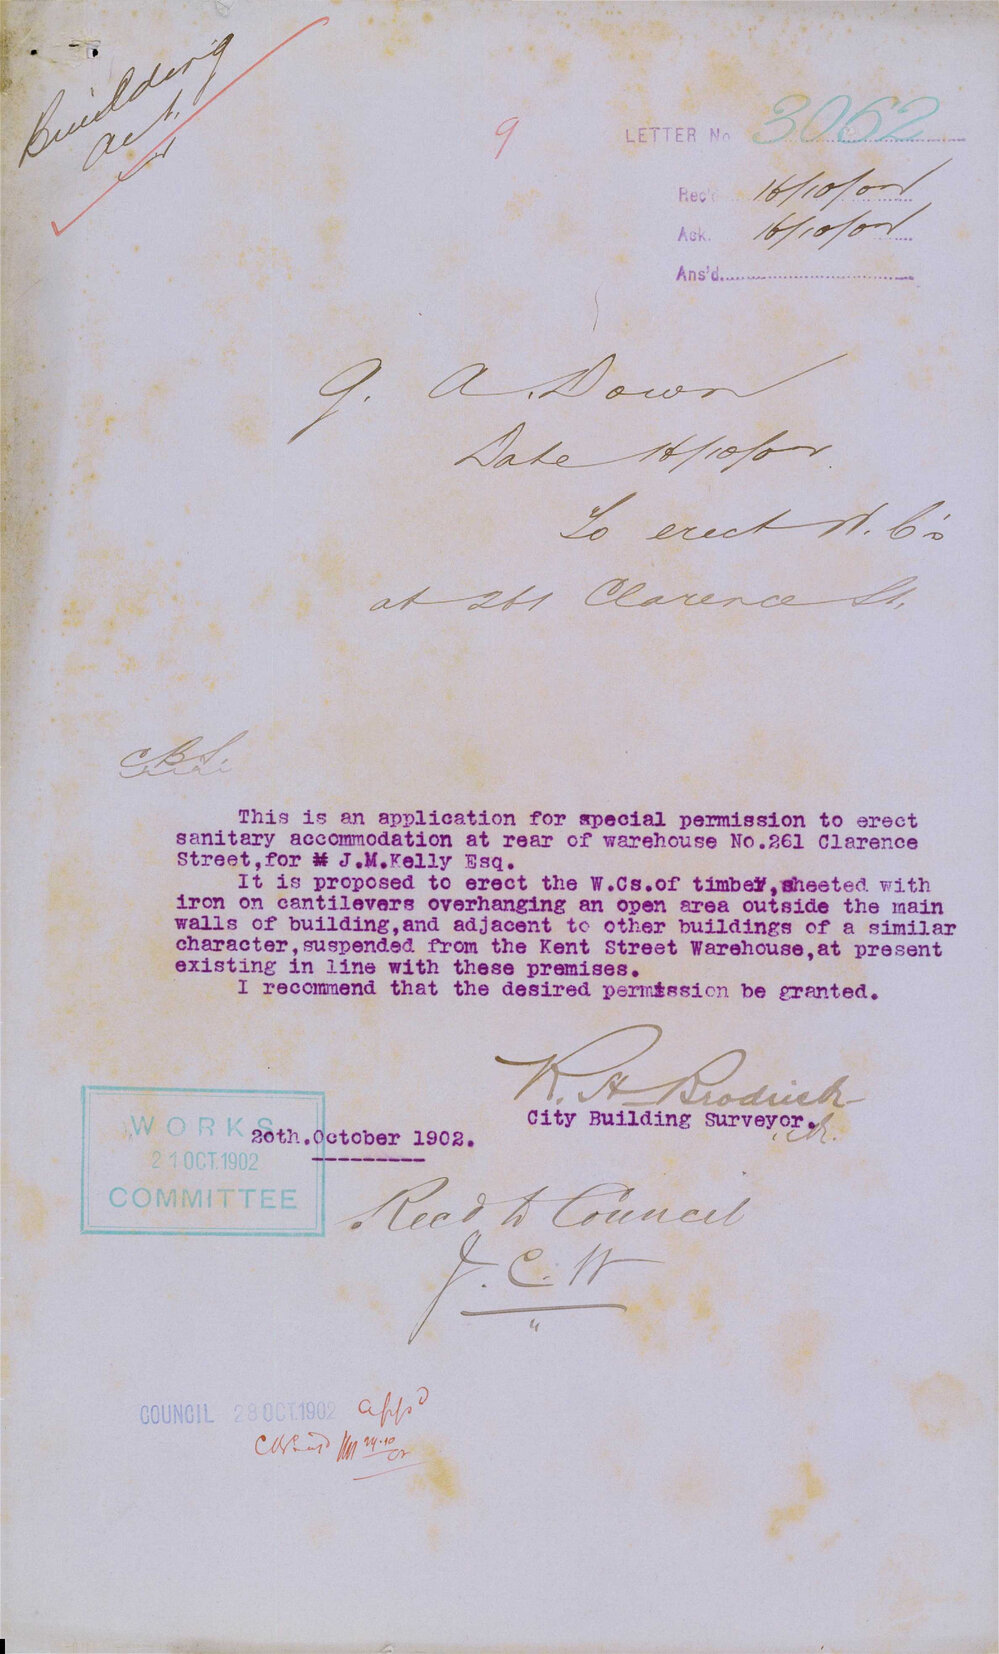 Building
Act.
9
LETTER No 3062
Rec'd 16/10/02
Ack. 16/10/02
Ans'd
G. A. Down
Date 16/10/02
To erect W.C's
at 261 Clarence St.
C.B.S.
This is an application for special permission to erect
sanitary accommodation at rear of warehouse No.261 Clarence
Street,for J.M.Kelly Esq.
It is proposed to erect the W.Cs.of timber,sheeted with
iron on cantilevers overhanging an open area outside the main
walls of building,and adjacent to other buildings of a similar
character,suspended from the Kent Street Warehouse,at present
existing in line with these premises.
I recommend that the desired permission be granted.
R. H. Brodrick
City Building Surveyor.
20th.October 1902.
WORKS
21 OCT.1902
COMMITTEE
Recd to Council
J. C. W
COUNCIL 28 OCT.1902 appd